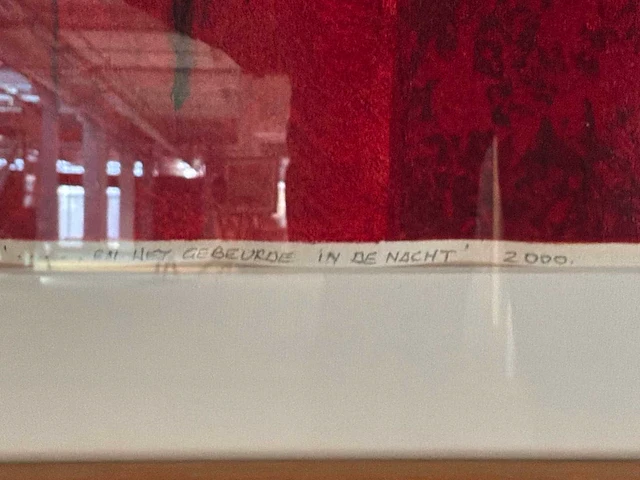 '..... EN HET GEBEURDE IN DE NACHT' 2000.